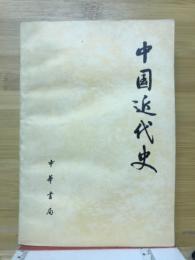 中国近代史
中华书局